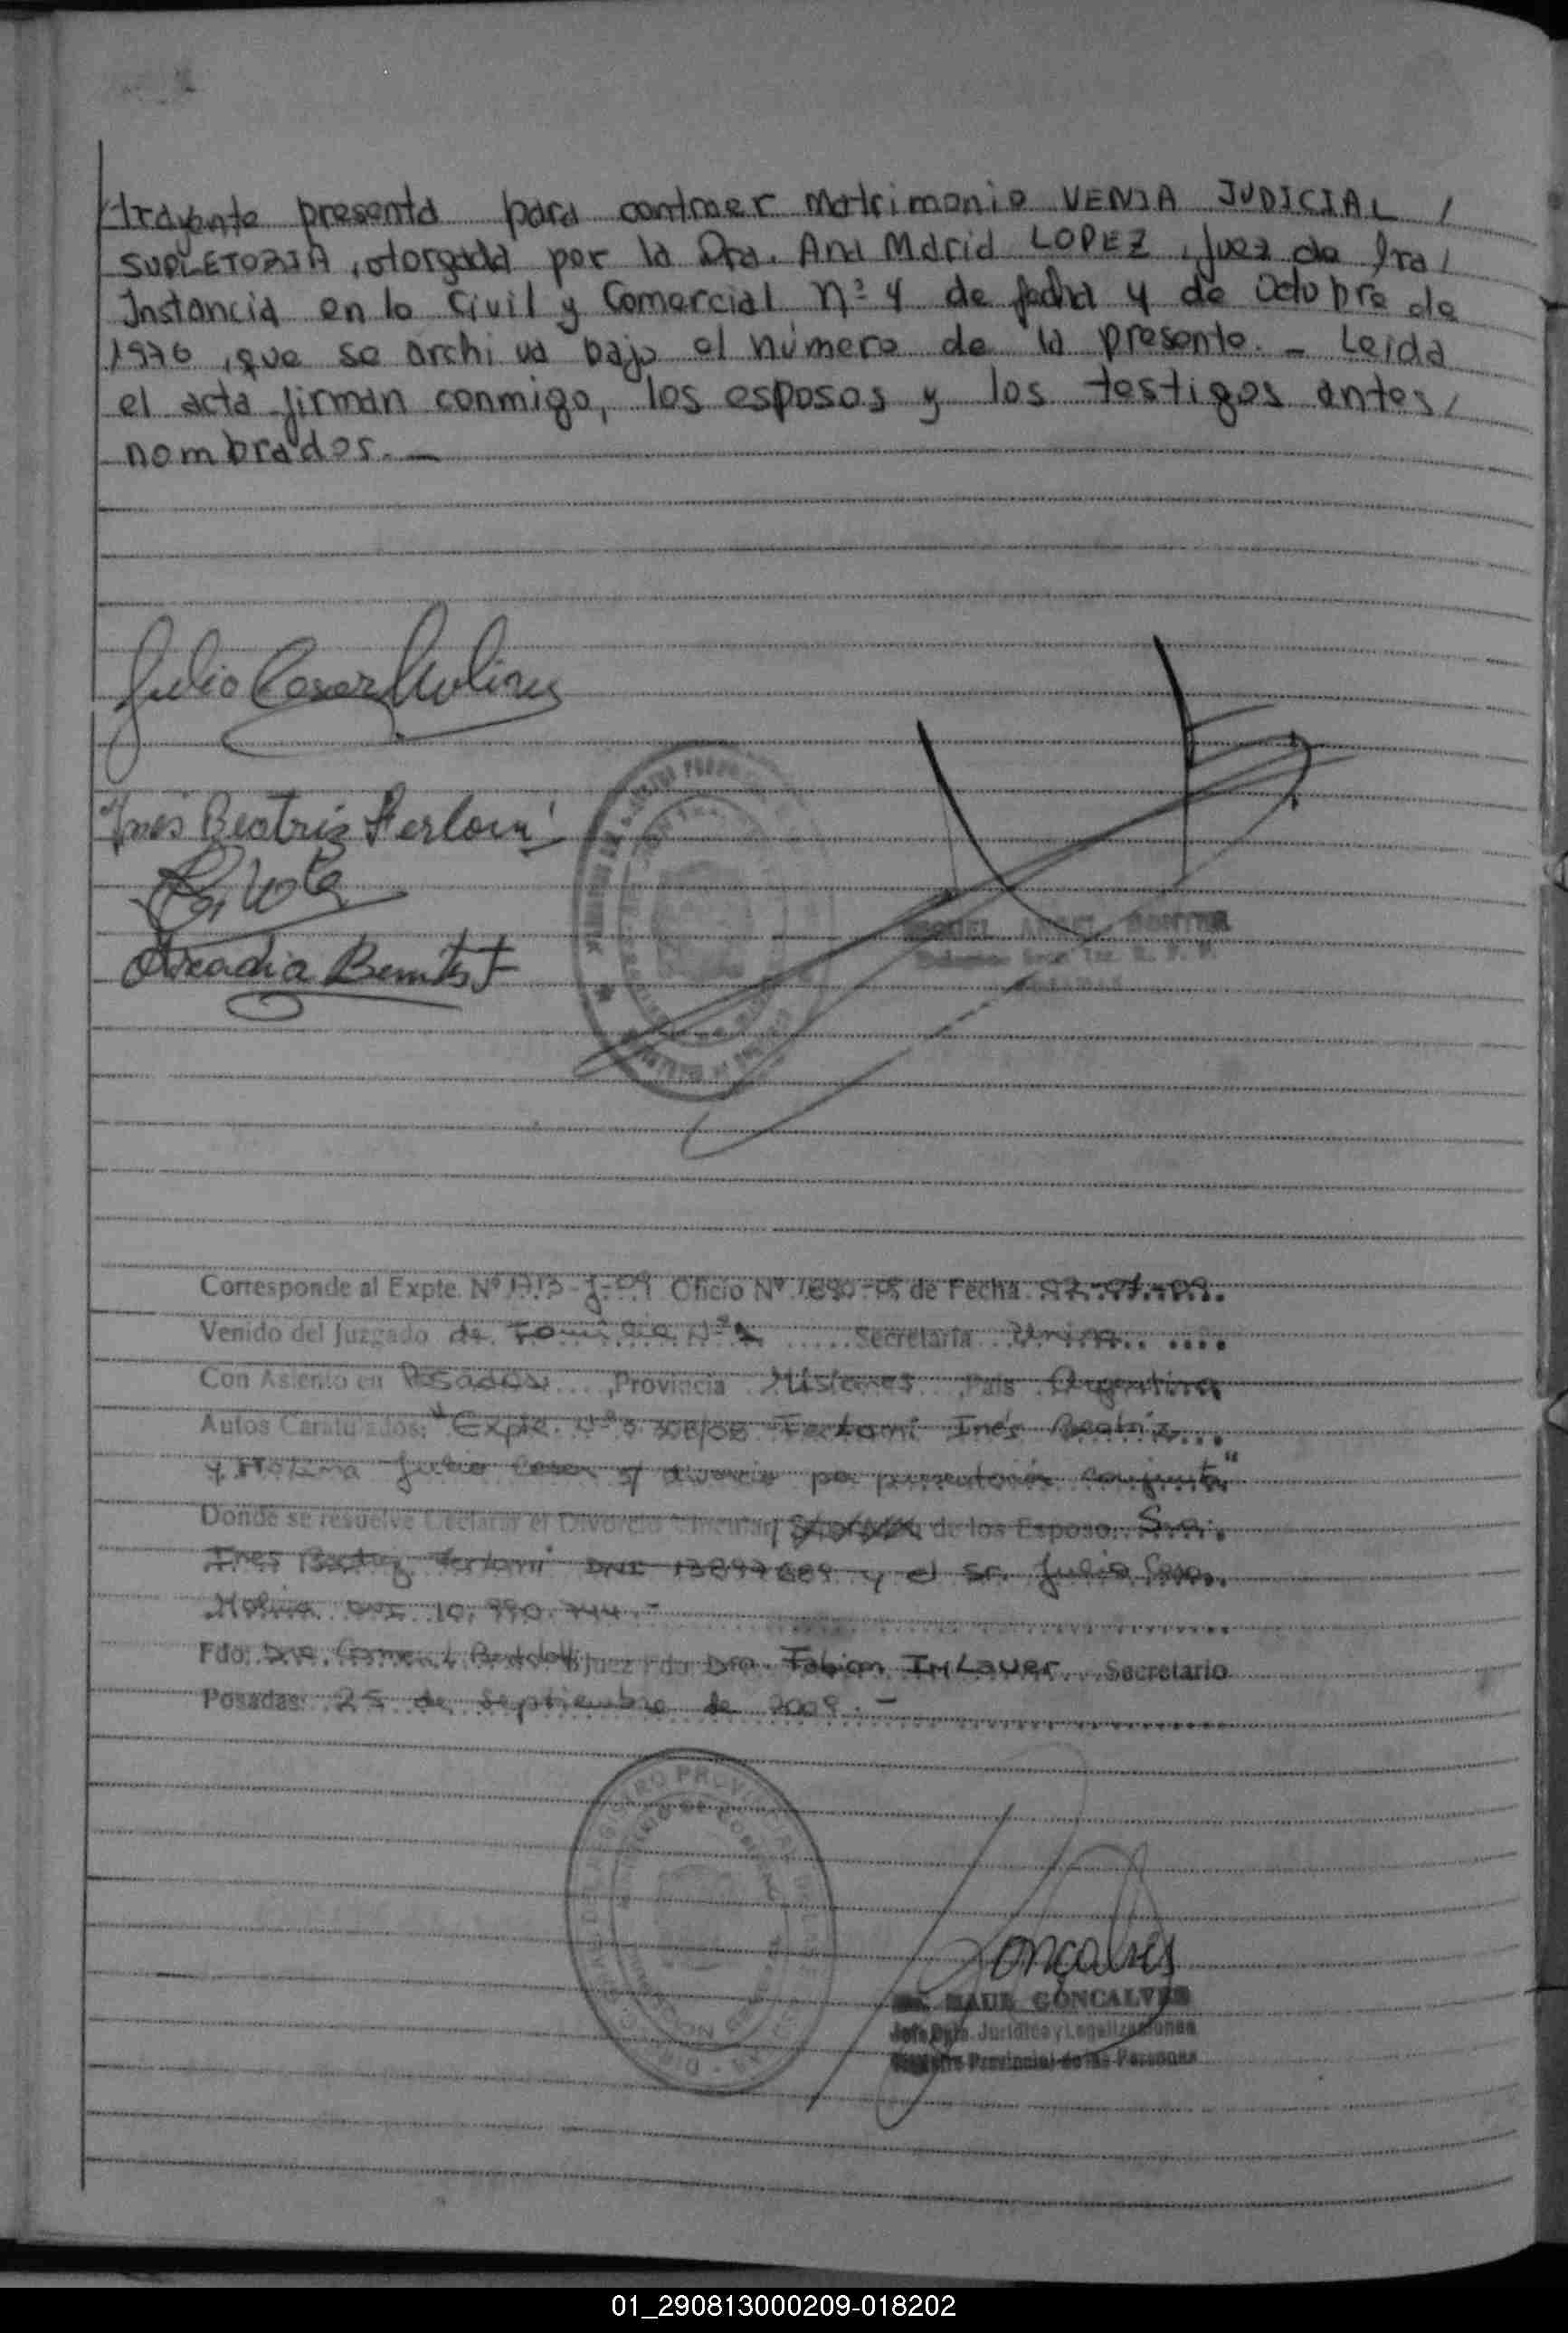 trayente presenta para contraer matrimonio VENIA JUDICIAL /
SUPLETORIA, otorgada por la Dra. Ana Maria LOPEZ, Juez de 1ra/
Instancia en lo Civil y Comercial nº 4 de fecha 4 de Octubre de
1976, que se archiva bajo el número de la presente. - Leida
el acta firman conmigo, los esposos y los testigos antes/
nombrados. -
Julio Cesar Molina
Inés Beatriz
Arcadia Benitez
MIGUEL ANGEL
Corresponde al Expte. Nº 1713-J-09 Oficio Nº de Fecha
Venido del Juzgado de Familia Nº Secretaria Unica
Con Asiento en Posadas, Provincia Misiones, País Argentina
Autos Caratulados: "Expte. Nº Inés Beatriz
y Molina Julio Cesar s/ divorcio por presentación conjunta"
Donde se resuelve Declarar el Divorcio Vincular/ de los Esposo. Sra.
Ines Beatriz DNI y el Sr. Julio Cesar
Molina DNI 10.990.744.-
Fdo: Dra. Juez Fdo Dra. Fabian Secretario
Posadas: 25 de Septiembre de 2009. -
REGISTRO PROVINCIAL DE LAS
Goncalves
RAUL GONCALVES
Jefe Dpto. Jurídico y Legalizaciones
Registro Provincial de las Personas
01_290813000209-018202